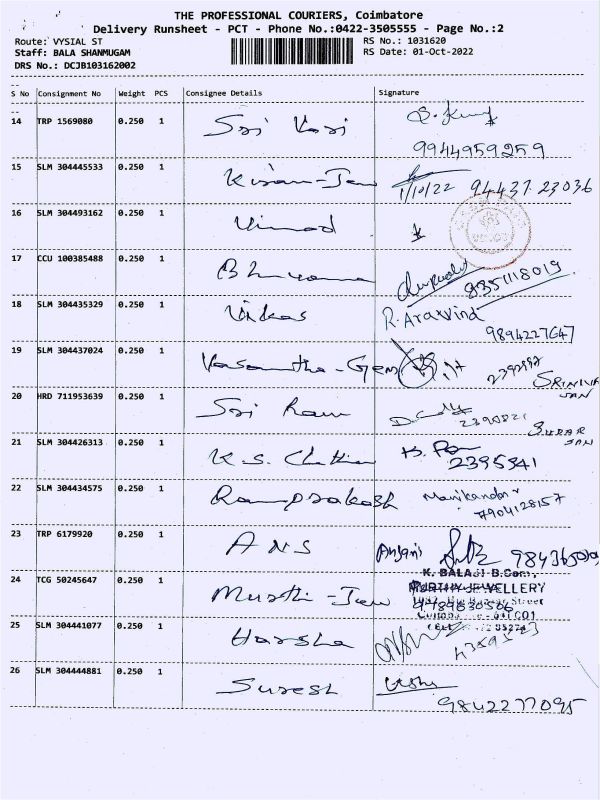 THE PROFESSIONAL COURIERS, Coimbatore
Delivery Runsheet - PCT - Phone No.:0422-3505555 - Page No.:2
Route: VYSIAL ST
RS No.: 1031620
Staff: BALA SHANMUGAM
RS Date: 01-Oct-2022
DRS No.: DCJB103162002
S No Consignment No Weight PCS Consignee Details Signature
14 TRP 1569080 0.250 1 Sri Vasi
9944959259
15 SLM 304445533 0.250 1 Kiran-Jew 1/10/22 94437 23036
16 SLM 304493162 0.250 1 Vinod
17 CCU 100385488 0.250 1 Bhuvana 9351118019
18 SLM 304435329 0.250 1 Vikas R. Aravind
9894227647
19 SLM 304437024 0.250 1 Vasantha-Gem
SRINIVA
SAN
20 HRD 711953639 0.250 1 Sri Ram
21 SLM 304426313 0.250 1 K.S. Chettiar 2395341
22 SLM 304434575 0.250 1 Ramprakash Manikandan
7904128157
23 TRP 6179920 0.250 1 ANS Anjani
24 TCG 50245647 0.250 1 Murthi-Jew K. BALAJI B.Com.,
MURTHY JEWELLERY
9789630506
25 SLM 304441077 0.250 1 Harsha
26 SLM 304444881 0.250 1 Suresh
9842277095